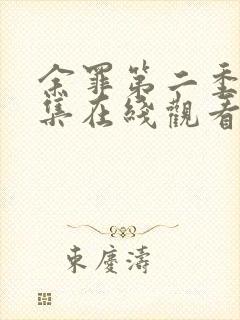 余罪第二季
集在线觀看
東慶濤